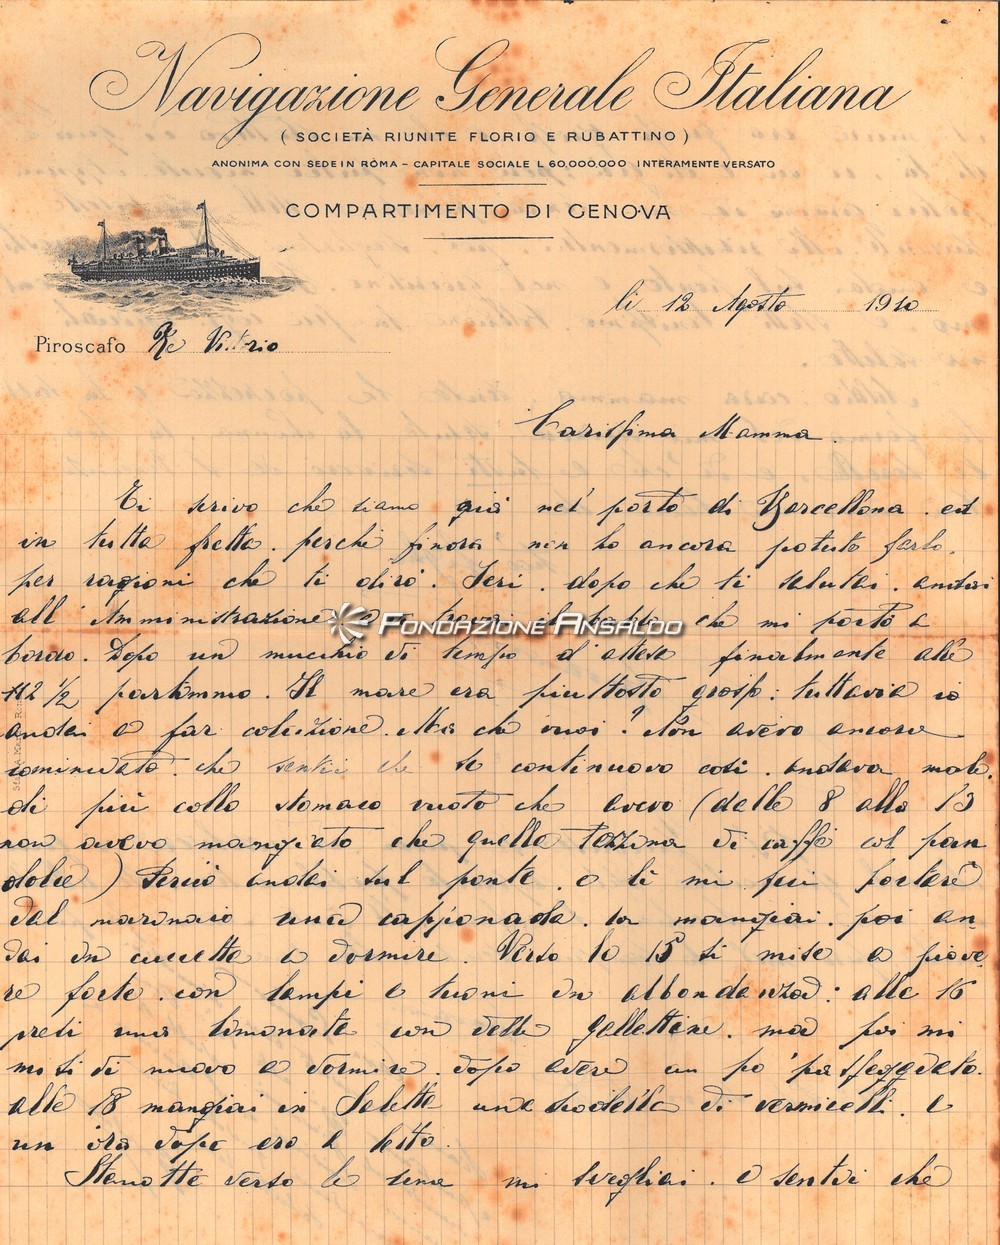 Navigazione Generale Italiana
(SOCIETÀ RIUNITE FLORIO E RUBATTINO)
ANONIMA CON SEDE IN ROMA - CAPITALE SOCIALE L. 60.000.000 INTERAMENTE VERSATO
COMPARTIMENTO DI GENOVA
li 12 Agosto 1910
Piroscafo Re Vittorio
Carissima Mamma.
Ti scrivo che siamo già nel porto di Barcellona. ed
in tutta fretta. perchè finora non ho ancora potuto farlo.
per ragioni che ti dirò. Ieri. dopo che ti salutai. andai
all' Amministrazione che mi portò a
FONDAZIONE ANSALDO
bordo. Dopo un mucchio di tempo d'attesa finalmente alle
12 1/2 partimmo. Il mare era piuttosto grosso: tuttavia io
andai a far colazione. Ma che vuoi? Non avevo ancora
cominciato. che sentii che se continuavo così. andava male.
di più collo stomaco vuoto che avevo (dalle 8 alle 13
non avevo mangiato che quella tazzina di caffè col pan
dolce) Perciò andai sul ponte. e lì mi feci portare
dal marinaio una capponada. la mangiai. poi an-
dai in cuccetta a dormire. Verso le 15 si mise a piove-
re forte. con lampi e tuoni in abbondanza: alle 16
presi una limonata con delle gallettine. ma poi mi
misi di nuovo a dormire. dopo avere un po' passeggiato.
alle 18 mangiai in Saletta una scodella di vermicelli. e
un' ora dopo ero a letto.
Stanotte verso le mi svegliai. e sentii che